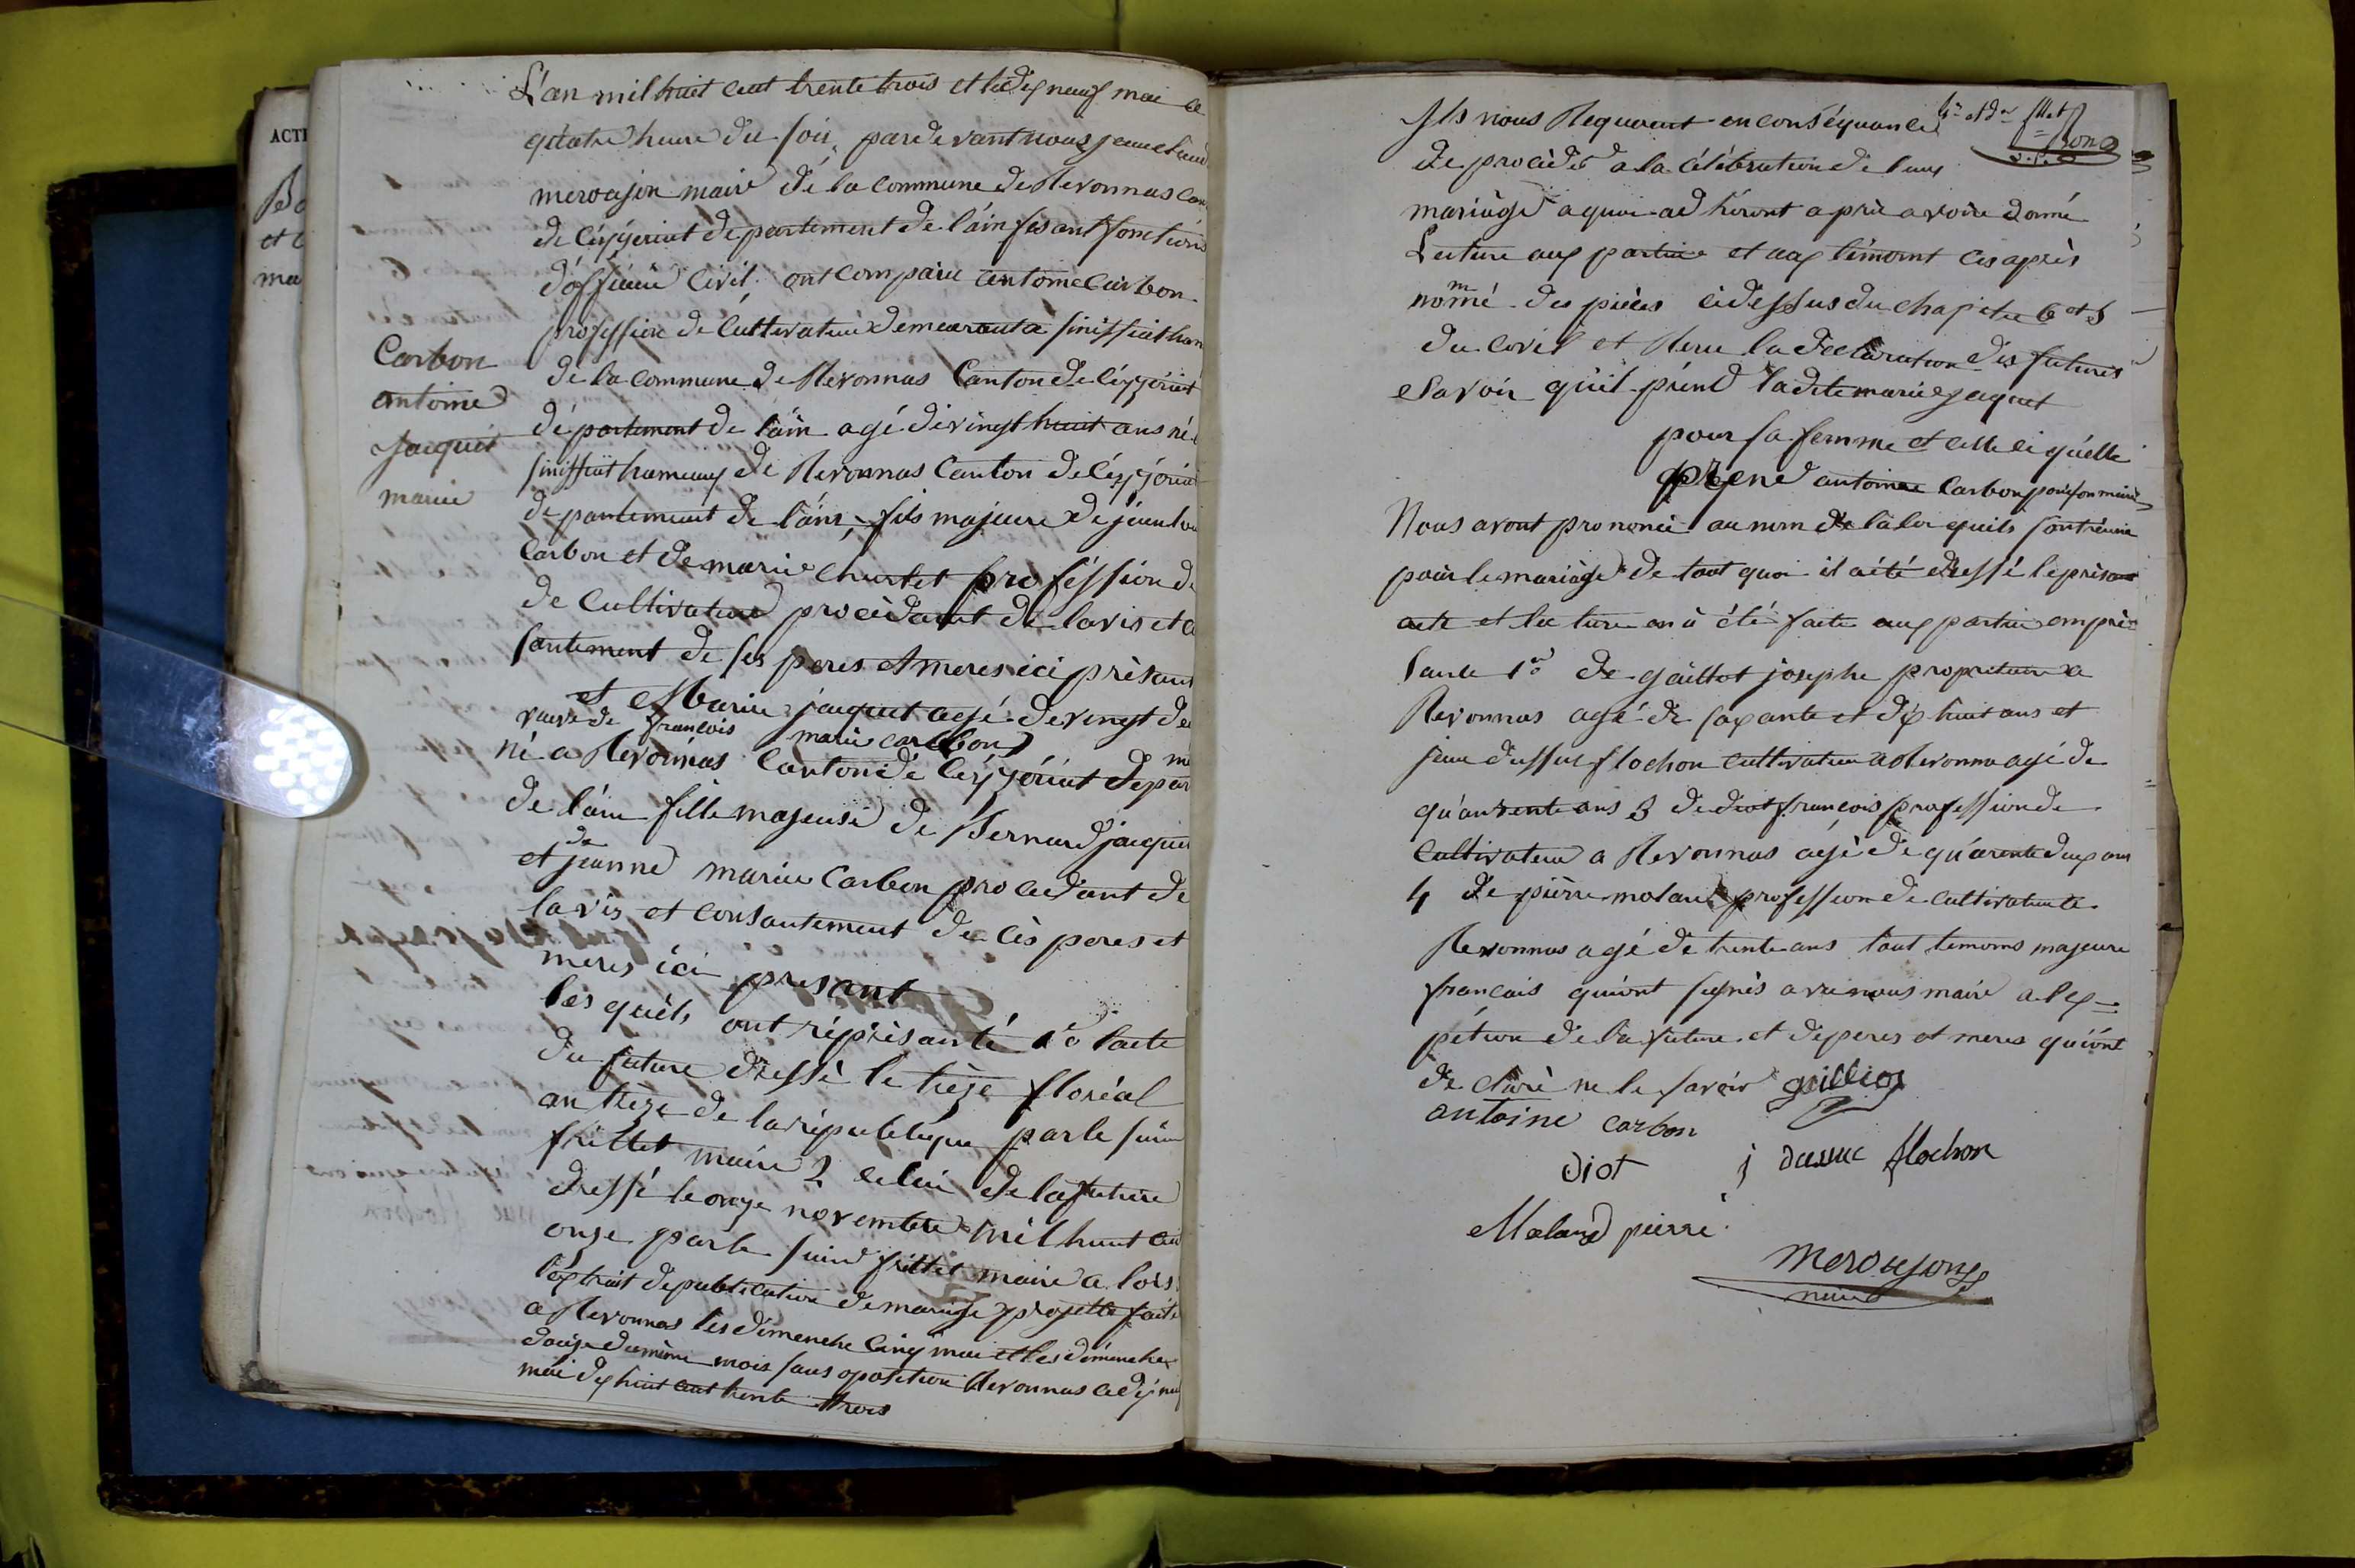 ACTE
L'an mil huit cent trente trois et le dix neuf mai a
quatre heure du soir, pardevant nous jean
mervajon maire de la commune de Revonnas can
de céyzériat departement de l'ain fesant fonctions
d'officier civil ont comparu antoine Carbon
profession de Cultivateur demeurant a sinissiat ham
de la commune de Revonnas Canton de céyzériat
département de l'ain agé de vingt huit ans né
sinissiat hameaux de Revonnas Canton de céyzériat
departement de l'ain, fils majeure de jean
Carbon et de marie churlet proféssion de
de Cultivateur procèdant de lavis et co
santement de ses peres et meres ici présant
et Marie jaquet agé de vingt de
veuve de francois marie carbon
né a Revonnas Canton de céyzériat depar
de l'ain fille majeuse de Bernard jaquet
et de jeanne marie Carbon procedant de
lavis et consantement de cès peres et
meres ici présant
les quèls ont réprèsanté 1o lacte
du future dréssè le trèze floréal
an trèze de la république par le sieur
frillet maire 2 celui de la future
dressé le onze novembre mil huit cen
onze par le sieur frillet maire a lors
l'extrait de publication de mariage projetté faite
a Revonnas les dimanche cinq mai et les dimanche
douze du même mois sans oposition Revonnas ce dix neuf
mai dix huit cent trente trois
Carbon
antoine
Jacquet
marie
Ils nous Requerent en conséquance
de procèder a la célébration de leur
mariage a quoi ad hérant aprè avoire donné
Lecture aux partie et aux témoint cis après
nommé des pièces ci dessus du chapitre 6 et 5
du civil et Recu la declaration des futures
savoir qu'il prend ladite marie jaquet
pour sa femme et celle ci quélle
prend antoine Carbon pour son mari
Nous avont prononcé au nom de la loi quils sont réunie
pour le mariage de tout quoi il a été dressé le présant
acte et lecture an à été faite aux partie en prè
sance 1o de gaillot josephe propriétaire a
Revonnas agé de soxante et dix huit ans et
jean dussuc flochon cultivateur a Revonna agé de
quarente ans 3 de diot françois profession de
Cultivateur a Revonnas agé de quarente deux ans
4 de pièrre moland profession de Cultivateur a
Revonnas agé de trente ans tout temoins majeure
francais quiont signès avec nous maire a lex-
pétion de la future et de peres et meres qui ont
de claré ne le savoir
antoine carbon
diot
j dussuc flochon
Moland pierre
Mervajon
maire